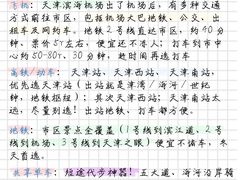 飞机：天津滨海机场出了机场后，有多种交通
方式前往市区，包括机场大巴地铁、公交、出
租车及网约车。地铁2号线直达市区，约40分
钟，票价5元左右，便宜还不堵人；打车到市中
心约50-80元，30分钟，赶时间再选打车
高铁/动车：天津站、天津西站、天津南站，
优先选天津站（出站就是津湾/海河/世纪
钟，地铁枢纽）；其次天津西站；天津南站太
远，尽量别选！出站地铁、打车都便宜。
地铁：市区景点全覆盖（1号线到滨江道、2号
线到机场、3号线到天津之眼）便宜不堵车，冬
天首选。
共享单车：短途代步神器！五大道、海河沿岸骑